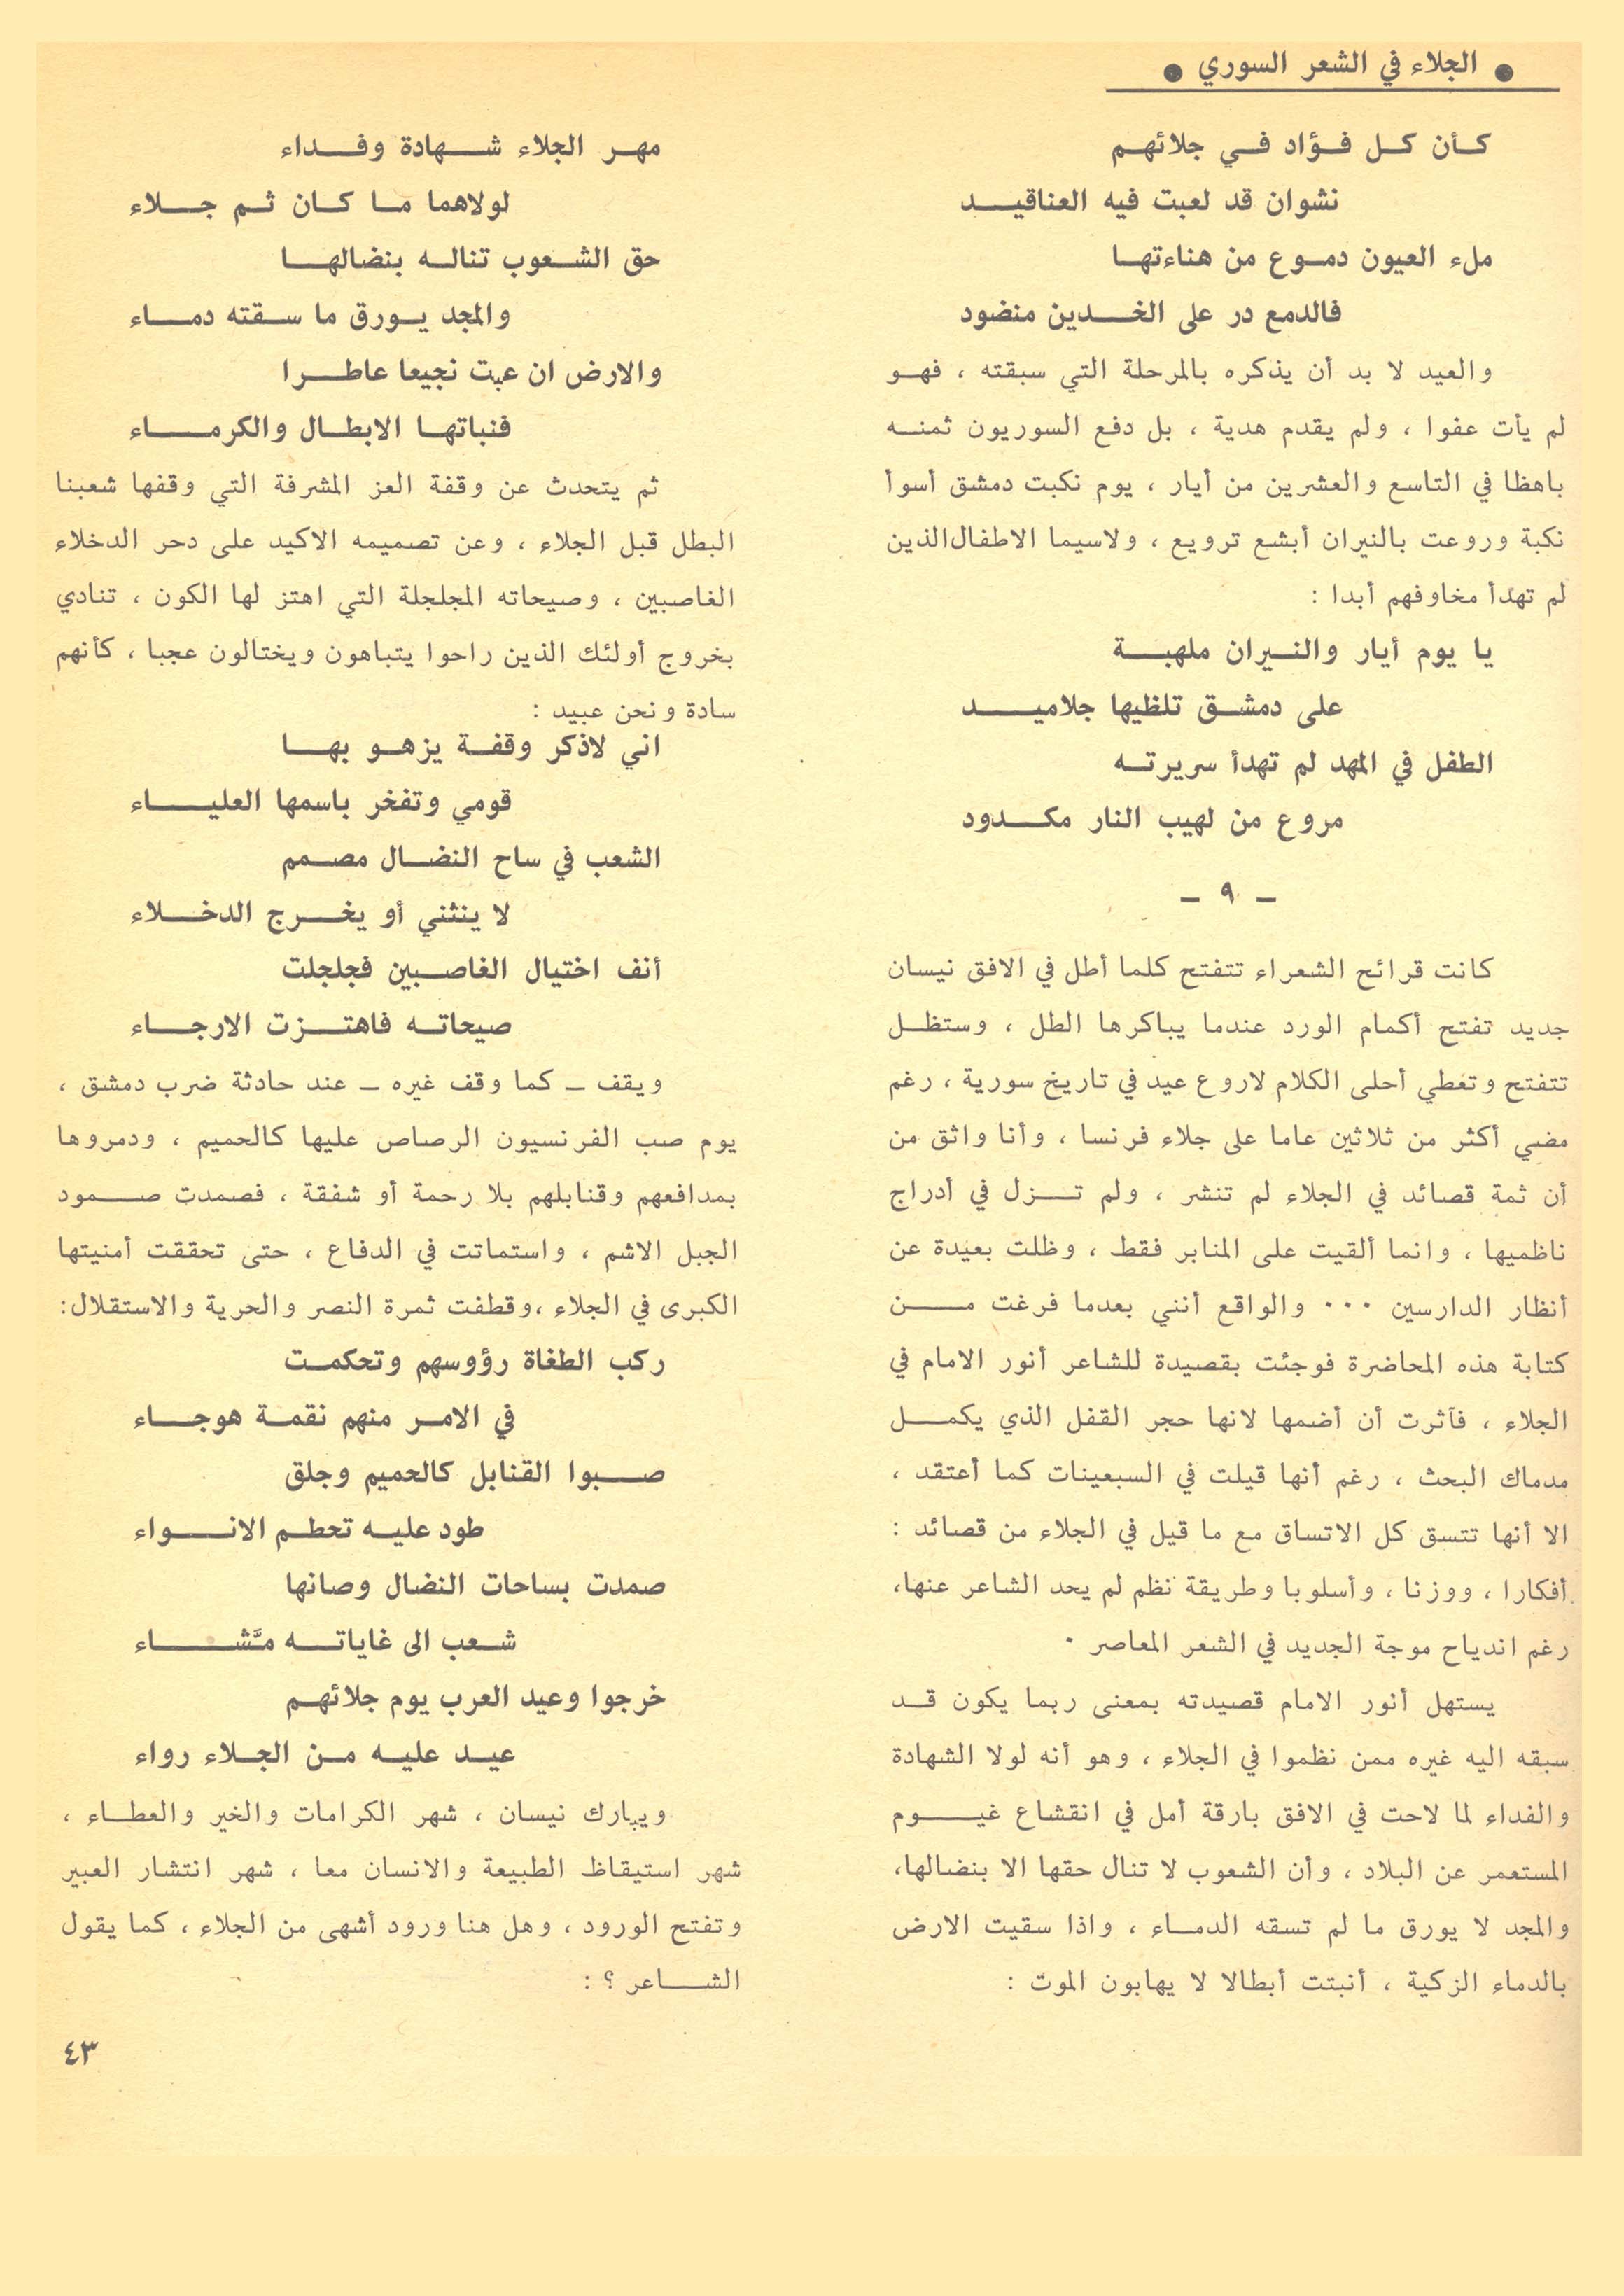 ● الجلاء في الشعر السوري ●
كأن كل فؤاد في جلائهم
نشوان قد لعبت فيه العناقيد
ملء العيون دموع من هناءتها
فالدمع در على الخدين منضود
والعيد لا بد أن يذكره بالمرحلة التي سبقته ، فهو
لم يأت عفوا ، ولم يقدم هدية ، بل دفع السوريون ثمنه
باهظا في التاسع والعشرين من أيار ، يوم نكبت دمشق أسوأ
نكبة وروعت بالنيران أبشع ترويع ، ولاسيما الاطفال الذين
لم تهدأ مخاوفهم أبدا :
يا يوم أيار والنيران ملهبة
على دمشق تلظيها جلاميد
الطفل في المهد لم تهدأ سريرته
مروع من لهيب النار مكدود
– ٩ –
كانت قرائح الشعراء تتفتح كلما أطل في الافق نيسان
جديد تفتح أكمام الورد عندما يباكرها الطل ، وستظل
تتفتح وتعطي أحلى الكلام لاروع عيد في تاريخ سورية ، رغم
مضي أكثر من ثلاثين عاما على جلاء فرنسا ، وأنا واثق من
أن ثمة قصائد في الجلاء لم تنشر ، ولم تزل في أدراج
ناظميها ، وانما ألقيت على المنابر فقط ، وظلت بعيدة عن
أنظار الدارسين ٠٠٠ والواقع أنني بعدما فرغت من
كتابة هذه المحاضرة فوجئت بقصيدة للشاعر أنور الامام في
الجلاء ، فآثرت أن أضمها لانها حجر القفل الذي يكمل
مدماك البحث ، رغم أنها قيلت في السبعينات كما أعتقد ،
الا أنها تتسق كل الاتساق مع ما قيل في الجلاء من قصائد :
أفكارا ، ووزنا ، وأسلوبا وطريقة نظم لم يحد الشاعر عنها،
رغم اندياح موجة الجديد في الشعر المعاصر ٠
يستهل أنور الامام قصيدته بمعنى ربما يكون قد
سبقه اليه غيره ممن نظموا في الجلاء ، وهو أنه لولا الشهادة
والفداء لما لاحت في الافق بارقة أمل في انقشاع غيوم
المستعمر عن البلاد ، وأن الشعوب لا تنال حقها الا بنضالها،
والمجد لا يورق ما لم تسقه الدماء ، واذا سقيت الارض
بالدماء الزكية ، أنبتت أبطالا لا يهابون الموت :
مهر الجلاء شهادة وفداء
لولاهما ما كان ثم جلاء
حق الشعوب تناله بنضالها
والمجد يورق ما سقته دماء
والارض ان عبت نجيعا عاطرا
فنباتها الابطال والكرماء
ثم يتحدث عن وقفة العز المشرفة التي وقفها شعبنا
البطل قبل الجلاء ، وعن تصميمه الاكيد على دحر الدخلاء
الغاصبين ، وصيحاته المجلجلة التي اهتز لها الكون ، تنادي
بخروج أولئك الذين راحوا يتباهون ويختالون عجبا ، كأنهم
سادة ونحن عبيد :
اني لاذكر وقفة يزهو بها
قومي وتفخر باسمها العلياء
الشعب في ساح النضال مصمم
لا ينثني أو يخرج الدخلاء
أنف اختيال الغاصبين فجلجلت
صيحاته فاهتزت الارجاء
ويقف – كما وقف غيره – عند حادثة ضرب دمشق ،
يوم صب الفرنسيون الرصاص عليها كالحميم ، ودمروها
بمدافعهم وقنابلهم بلا رحمة أو شفقة ، فصمدت صمود
الجبل الاشم ، واستماتت في الدفاع ، حتى تحققت أمنيتها
الكبرى في الجلاء ،وقطفت ثمرة النصر والحرية والاستقلال:
ركب الطغاة رؤوسهم وتحكمت
في الامر منهم نقمة هوجاء
صبوا القنابل كالحميم وجلق
طود عليه تحطم الانواء
صمدت بساحات النضال وصانها
شعب الى غاياته مشّاء
خرجوا وعيد العرب يوم جلائهم
عيد عليه من الجلاء رواء
ويبارك نيسان ، شهر الكرامات والخير والعطاء ،
شهر استيقاظ الطبيعة والانسان معا ، شهر انتشار العبير
وتفتح الورود ، وهل هنا ورود أشهى من الجلاء ، كما يقول
الشاعر ؟ :
٤٣